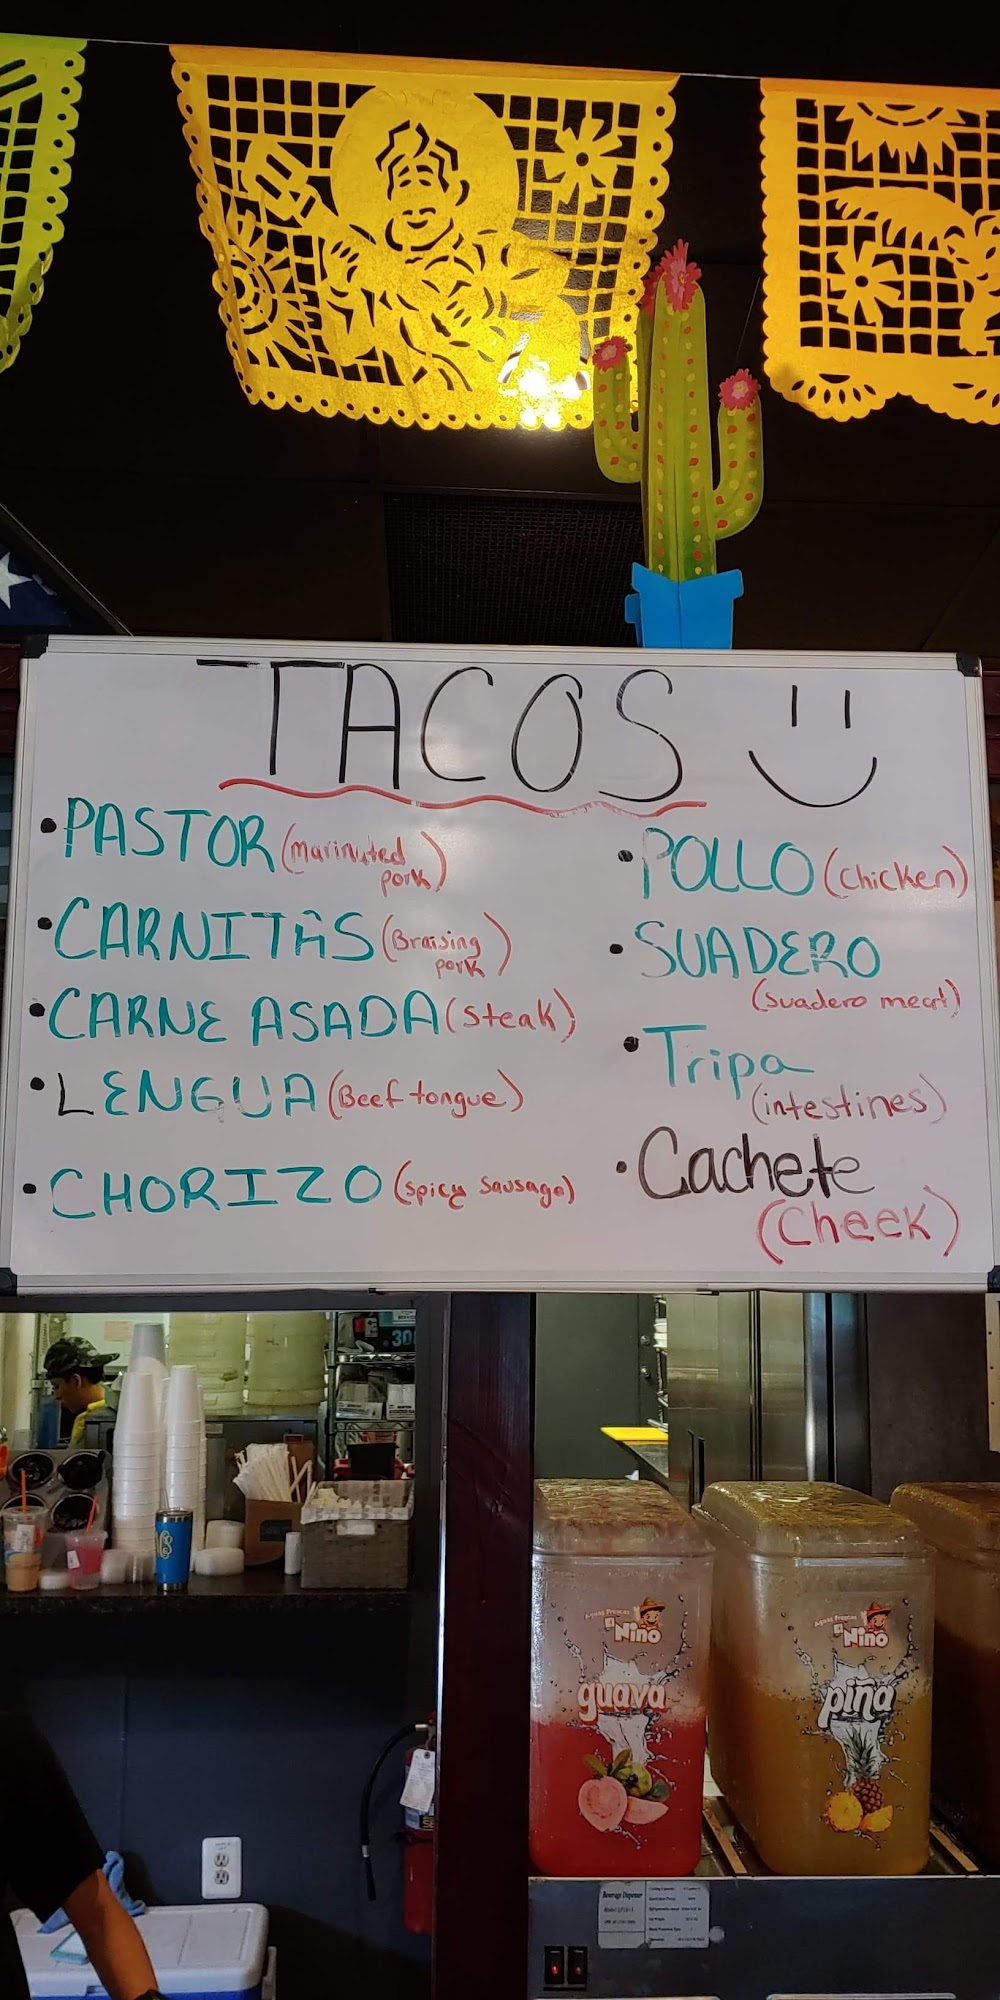 TACOS
• PASTOR (marinated
pork)
• CARNITAS (Braising
pork)
• CARNE ASADA (steak)
• LENGUA (Beef tongue)
• CHORIZO (spicy sausage)
• POLLO (chicken)
• SUADERO
(suadero meat)
• Tripa
(intestines)
• Cachete
(Cheek)
30
Aguas Frescas
El Nino
guava
Aguas Frescas
El Nino
piña
Beverage Dispenser